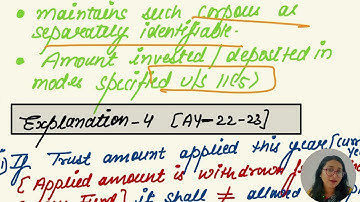 • maintains such corpous as
separately identifiable.
• Amount invested / deposited in
modes specified u/s 11(5)
Explanation-4 [AY-22-23]
i) If Trust amount applied this year [
[Applied amount is withdrawn
it shall ≠ allowed